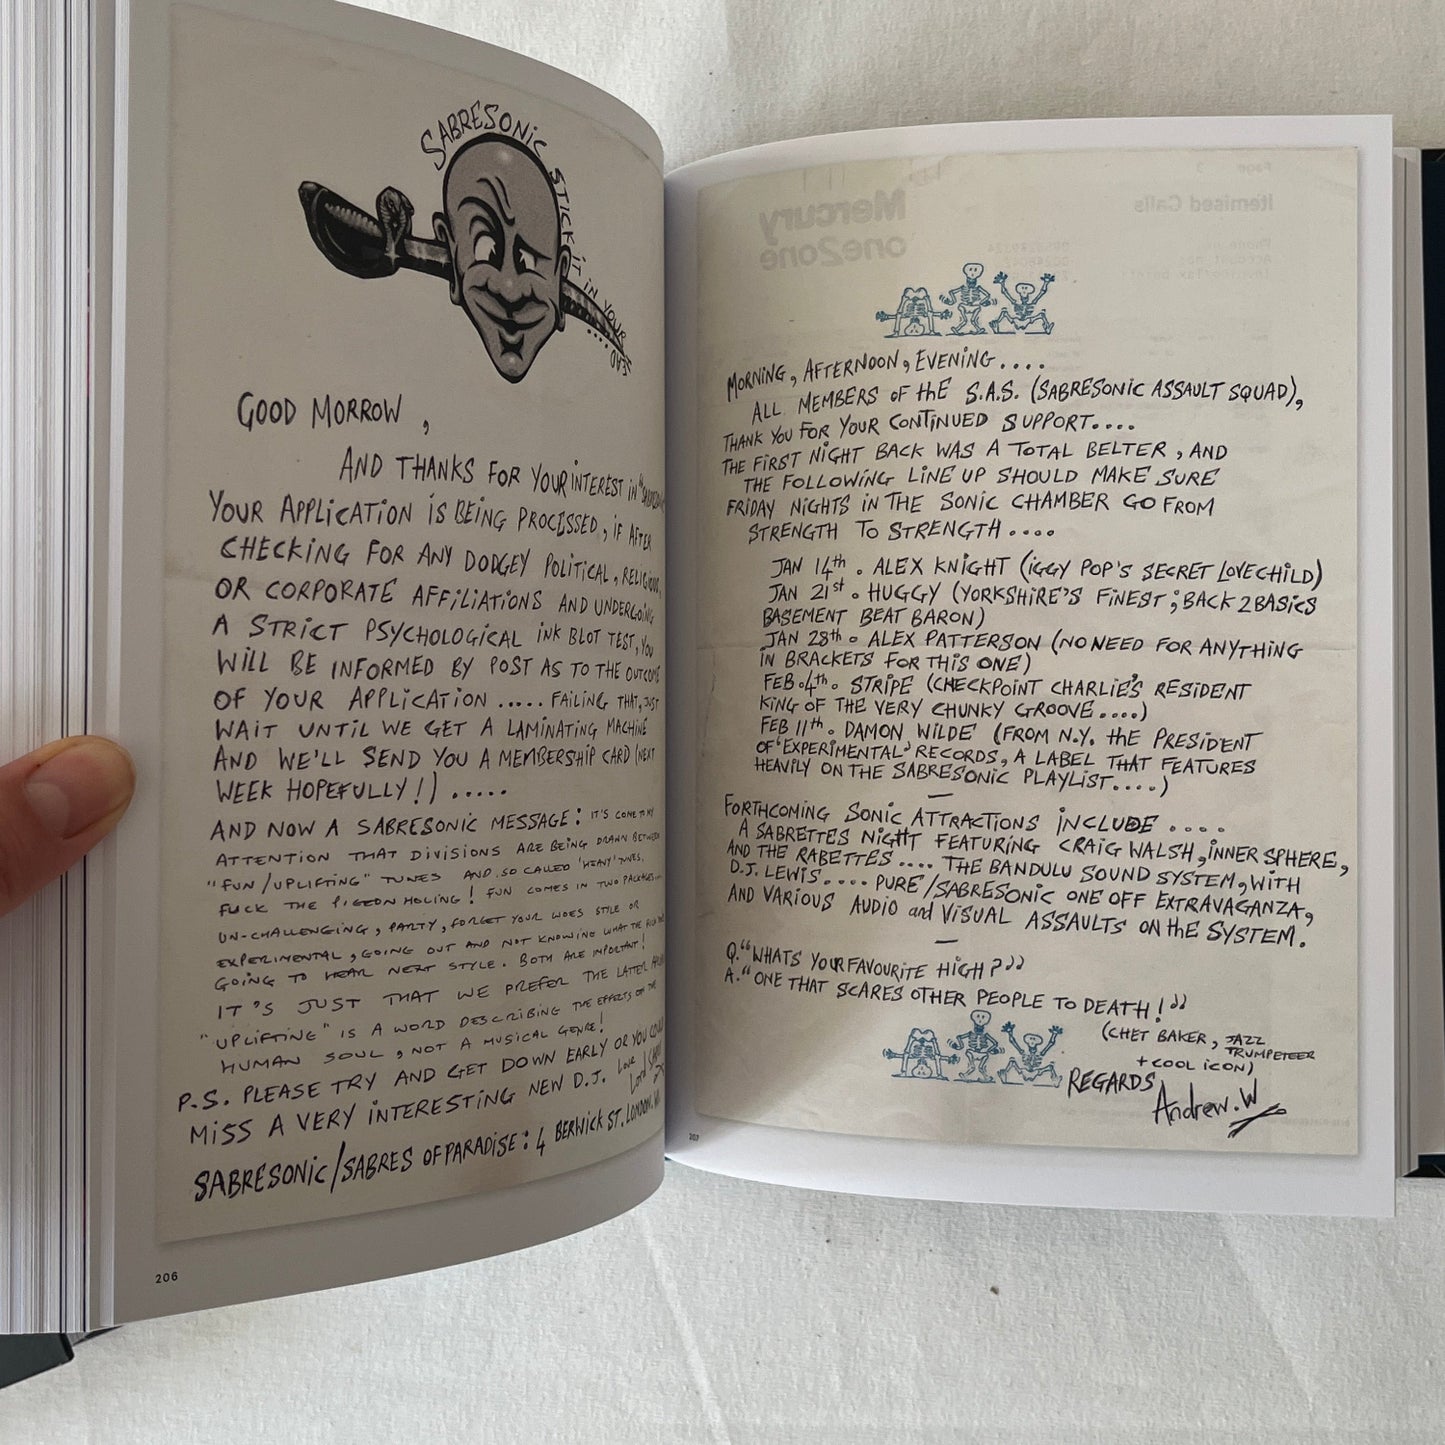 SABRESONIC STICK IT IN YOUR
HEAD ....
GOOD MORROW,
AND THANKS FOR YOUR INTEREST IN "
YOUR APPLICATION IS BEING PROCESSED, IF AFTER
CHECKING FOR ANY DODGEY POLITICAL, RELIGIOUS,
OR CORPORATE AFFILIATIONS AND UNDERGOING
A STRICT PSYCHOLOGICAL INK BLOT TEST, YOU
WILL BE INFORMED BY POST AS TO THE OUTCOME
OF YOUR APPLICATION ..... FAILING THAT, JUST
WAIT UNTIL WE GET A LAMINATING MACHINE
AND WE'LL SEND YOU A MEMBERSHIP CARD (NEXT
WEEK HOPEFULLY!) .....
AND NOW A SABRESONIC MESSAGE: IT'S COME TO MY
ATTENTION THAT DIVISIONS ARE BEING DRAWN BETWEEN
"FUN/UPLIFTING" TUNES AND SO CALLED 'HEAVY' TUNES.
FUCK THE PIGEON HOLING! FUN COMES IN TWO PACKAGES...
UN-CHALLENGING, PARTY, FORGET YOUR WOES STYLE OR
EXPERIMENTAL, GOING OUT AND NOT KNOWING WHAT THE FUCK YOU'RE
GOING TO HEAR NEXT STYLE. BOTH ARE IMPORTANT!
IT'S JUST THAT WE PREFER THE LATTER
"UPLIFTING" IS A WORD DESCRIBING THE EFFECTS ON THE
HUMAN SOUL, NOT A MUSICAL GENRE!
P.S. PLEASE TRY AND GET DOWN EARLY OR YOU COULD
MISS A VERY INTERESTING NEW D.J. LOVE LORD
SABRESONIC/SABRES OF PARADISE: 4 BERWICK ST. LONDON. W1
206
Page 3
Mercury
one2one
Itemised Calls
MORNING, AFTERNOON, EVENING ....
ALL MEMBERS OF THE S.A.S. (SABRESONIC ASSAULT SQUAD),
THANK YOU FOR YOUR CONTINUED SUPPORT....
THE FIRST NIGHT BACK WAS A TOTAL BELTER, AND
THE FOLLOWING LINE UP SHOULD MAKE SURE
FRIDAY NIGHTS IN THE SONIC CHAMBER GO FROM
STRENGTH TO STRENGTH ....
JAN 14th . ALEX KNIGHT (IGGY POP'S SECRET LOVECHILD)
JAN 21st . HUGGY (YORKSHIRE'S FINEST; BACK 2 BASICS
BASEMENT BEAT BARON)
JAN 28th . ALEX PATTERSON (NO NEED FOR ANYTHING
IN BRACKETS FOR THIS ONE)
FEB. 4th . STRIPE (CHECKPOINT CHARLIE'S RESIDENT
KING OF THE VERY CHUNKY GROOVE....)
FEB 11th . DAMON WILDE (FROM N.Y. THE PRESIDENT
OF 'EXPERIMENTAL' RECORDS, A LABEL THAT FEATURES
HEAVILY ON THE SABRESONIC PLAYLIST....)
—
FORTHCOMING SONIC ATTRACTIONS INCLUDE ....
A SABRETTES NIGHT FEATURING CRAIG WALSH, INNER SPHERE,
AND THE RABETTES .... THE BANDULU SOUND SYSTEM, WITH
D.J. LEWIS.... PURE/SABRESONIC ONE OFF EXTRAVAGANZA,
AND VARIOUS AUDIO and VISUAL ASSAULTS ON THE SYSTEM.
—
Q. "WHATS YOUR FAVOURITE HIGH?"
A. "ONE THAT SCARES OTHER PEOPLE TO DEATH!"
(CHET BAKER, JAZZ
TRUMPETEER
+ COOL ICON)
REGARDS
Andrew.W
207